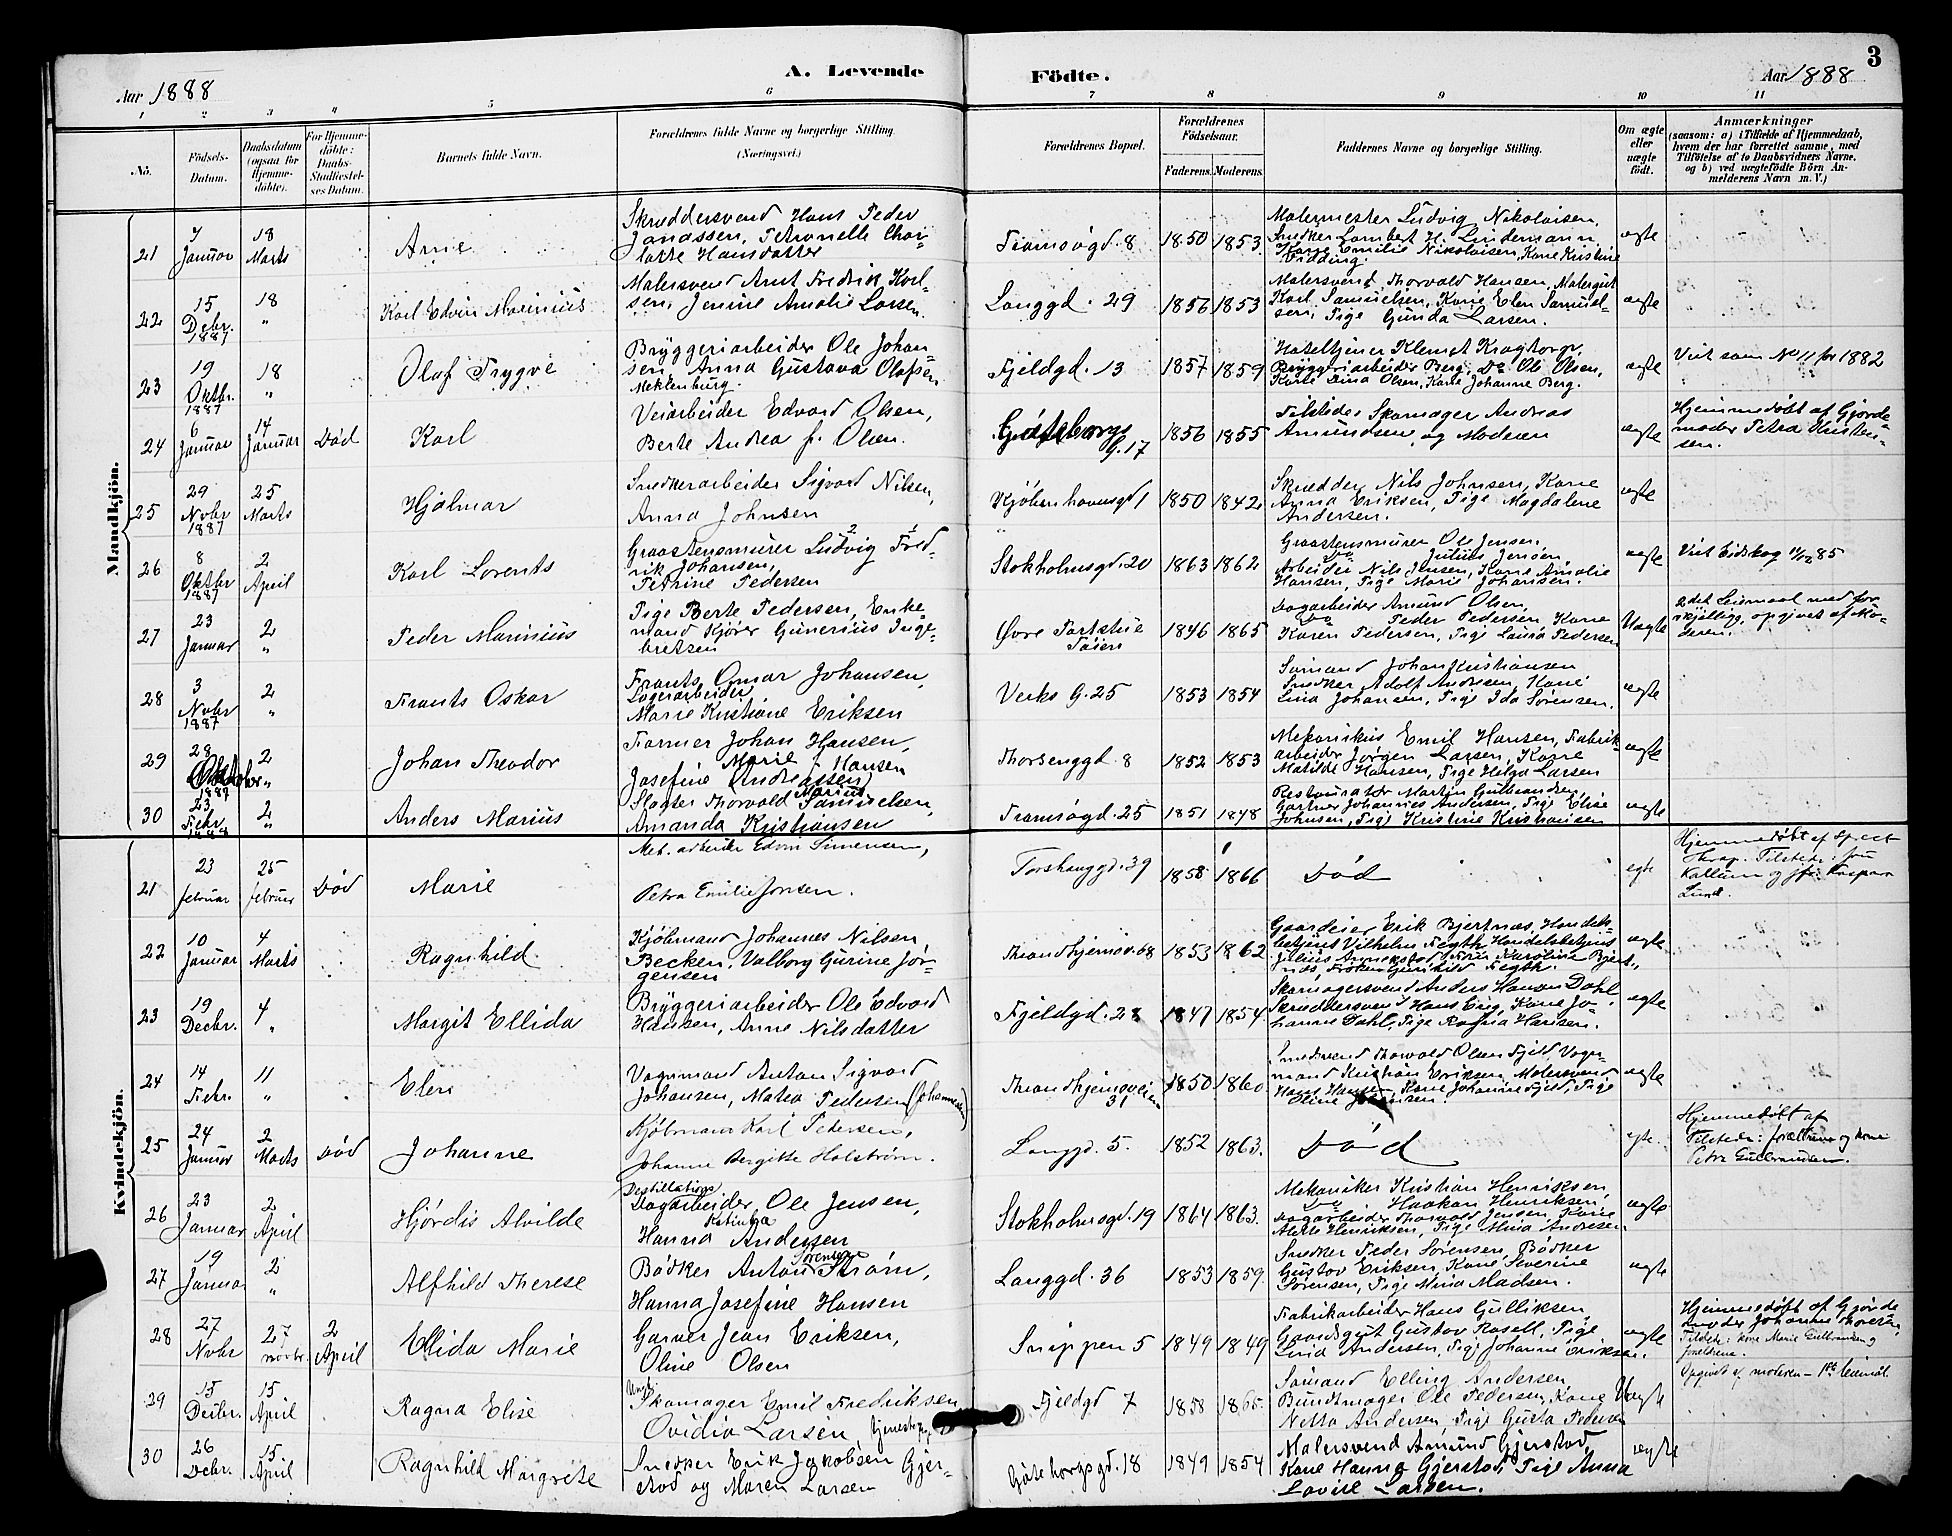 3
Aar 1888
A. Levende Födte.
Aar 1888
1 2 3 4 5 6 7 8 9 10 11
No.
Födsels-Datum.
Daabsdatum (ogsaa for Hjemmedöbte).
For Hjemmedöbte: Daabs-Stadfæstelses Datum.
Barnets fulde Navn.
Forældrenes fulde Navne og borgerlige Stilling. (Næringsvei.)
Forældrenes Bopæl.
Forældrenes Födselsaar.
Faderens. Moderens.
Faddernes Navne og borgerlige Stilling.
Om ægte eller uægte födt.
Anmærkninger
(saasom: a) i Tilfælde af Hjemmedaab,
hvem der har forrettet samme, med
Tilföielse af to Daabsvidners Navne,
og b) ved uægtefödte Börn An-
melderens Navn m. V.)
Mandkjön.
21 7 Januar 18 Marts Arne
Skræddersvend Hans Peder
Jonassen, Petronelle Char-
lotte Hansdatter
Tromsøgd. 8 1850 1853
Malermester Ludvig Nikolaisen,
Snedker Lambert H. Lindemann,
Kone Emilie Nikolaisen, Kone Kristine
Vidding.
ægte
22 15 Debr. 1887 18 " Karl Edvin Marinius
Malersvend Arnt Fredrik Karl-
sen, Jenine Amalie Larsen.
Langgd. 29 1856 1853
Malersvend Thorvald Hansen, Malergut
Karl Samuelsen, Kone Elen Samuel-
sen, Pige Gunda Larsen.
ægte
23 19 Oktbr. 1887 18 " Olaf Trygve
Bryggeriarbeider Ole Johan-
sen, Anna Gustava Olafsen
Meklenburg.
Fjeldgd. 13 1857 1859
Hoteltjener Klemet Kragtorp,
Bryggeriarbeider Berg, Do Ole Olsen,
Kone Lina Olsen, Kone Johanne Berg.
ægte
Viet som No 11 for 1882
24 6 Januar 14 Januar Død Karl
Veiarbeider Edvard Olsen,
Berte Andrea f. Olsen.
Gøteborgs
G. 17 1856 1855
Tilstede: Skomager Andreas
Amundsen og Moderen
ægte
Hjemmedøbt af Gjorde-
moder Petra Kristen-
sen.
25 29 Novbr 1887 25 Marts Hjalmar
Snedkerarbeider Sigvard Nilsen,
Anna Johnsen
Kjøbenhavnsgd 1 1850 1842
Skrædder Nils Johnsen, Kone
Anna Eriksen, Pige Magdalene
Andersen.
ægte
26 8 Oktbr 1887 2 April Karl Lorents
Graastensmurer Ludvig Fred-
rik Johansen,
Petrine Pedersen
Stokholmsgd. 20 1863 1862
Graastensmurer Ole Jensen,
Do Julius Jensen
Arbeider Nils Jensen, Kone Amalie
Hansen, Pige Marie Johansen.
ægte
Viet Eidskog 11/12 85
27 23 Januar 2 " Peder Marinius
Pige Berte Pedersen, Enke-
mand Kjører Gunerius Inge-
bretsen
Øvre Tøien 1846 1865
Dagarbeider Amund Olsen,
Do Peder Pedersen, Kone
Karen Pedersen, Pige Laura Pedersen
Uægte
2det Leiermaal med for-
skjellige, opgivet af Mo-
deren.
28 3 Novbr 1887 2 " Frants Oskar
Frants Omar Johansen,
Lagerarbeider,
Marie Kristiane Eriksen
Verks G. 25 1853 1854
Sømand Johan Kristiansen
Snedker Adolf Andresen, Kone
Lina Johansen, Pige Ida Sørensen.
ægte
29 28 Oktober 1887 2 " Johan Theodor
Farmer Johan Hansen,
Marie Hansen
Josefine Andreassen
Thorsenggd. 8 1852 1853
Mekanikus Emil Hansen, Fabrik-
arbeider Jørgen Larsen, Kone
Matilde Hansen, Pige Helga Larsen
ægte
30 23 Febr. 1888 2 " Anders Marius
Slagter Thorvald Marius Samuelsen,
Amanda Kristiansen
Tromsøgd. 25 1851 1848
Restauratør Martin Gulbrandsen,
Gartner Johannes Andersen, Pige Elise
Johnsen, Pige Kristine Kristiansen
ægte
Kvindekjön.
21 23 februar 25 februar Død Marie
Met. arbeider Edvin Simensen,
Petra Emilie Jonsen.
Torshauggd. 39 1858 1866 Død egte
22 10 Januar 4 Marts Ragnhild
Kjøbmand Johannes Nilsen
Becken, Valborg Gurine Jør-
gensen
Throndhjemsv. 68 1853 1862
Gaardeier Erik Bjertnæs, Handels-
betjent Vilhelm Fegth, Handelsbetjent
ægte
23 19 Decbr. 4 " Margit Ellida
Bryggeriarbeider Ole Edvard
Hansen, Anne Nilsdatter
Fjeldgd. 28 1847 1854
Skomagersvend Anders Hanson Dahl
Skræddersvend Hans Eng, Kone Jo-
hanne Dahl, Pige Ragna Hansen.
ægte
24 14 Febr. 11 " Elen
Vognmand Anton Sigvard
Johansen, Matea Pedersen (Johannesen)
Throndhjemsveien
31 1850 1860
Smedsvend Thorvald Olsen Fjeld, Vogn-
mand Kristian Eriksen, Malersvend
Hans Hansen, Kone Johanne Fjeld, Pige
Oline
ægte
25 24 Januar 2 Marts Død Johanne
Kjøbmann Karl Pedersen,
Johanne Bergitte Holstrøm.
Langgd. 5. 1852 1863. Død egte.
Hjemmedøbt af
Tilstede: forældrene og kone
Petra Gulbrandsen.
26 23 Januar 2 April Hjørdis Alvilde
Destillations
Dagarbeider Ole Jensen,
Katinka
Hanna Andersen
Stokholmsgd. 19 1864 1863.
Mekaniker Kristian Henriksen,
Do Haakon Henriksen,
Dagarbeider Thorvald Jensen, Kone
Mette Henriksen, Pige Mina Andresen
ægte
27 19 Januar 2 " Alfhild Therese
Bødker Anton Sørensen Strøm,
Hanna Josefine Hansen
Langgd. 36 1853 1859.
Snedker Peder Sørensen, Bødker
Gustav Eriksen, Kone Severine
Sørensen, Pige Mina Madsen.
ægte
28 27 Novbr 27 novbr 2 April Ellida Marie
Garver Jean Eriksen,
Oline Olsen
Snippen 5 1849 1849
Fabrikarbeider Hans Gulliksen,
Gaardsgut Gustav Rosell, Pige
Lina Andersen, Pige Johanne Eriksen.
ægte
Hjemmedøbt af Gjorde-
moder Johanne Thoresen,
Tilstede: kone Marie Gulbrandsen og
foreldrene.
29 15 Decbr. 15 April Ragna Elise
Ungk.
Skomager Emil Fredriksen
Ovidia Larsen,
Fjeldgd 7 1858 1865.
Sømand Elling Andersen
Bundtmager Ole Pedersen, Kone
Netta Andersen, Pige Gusta Pedersen
Uægte
Opgivet af moderen – 1ste leiermål.
30 26 Debr. 15 April Ragnhild Margrete
Snedker Erik Jakobsen Gjer-
stad og Maren Larsen
Gøteborgsgd. 18 1849 1854
Malersvend Amund Gjerstad,
Kone Hanna Gjerstad, Pige Anna
Lovise Larsen.
ægte